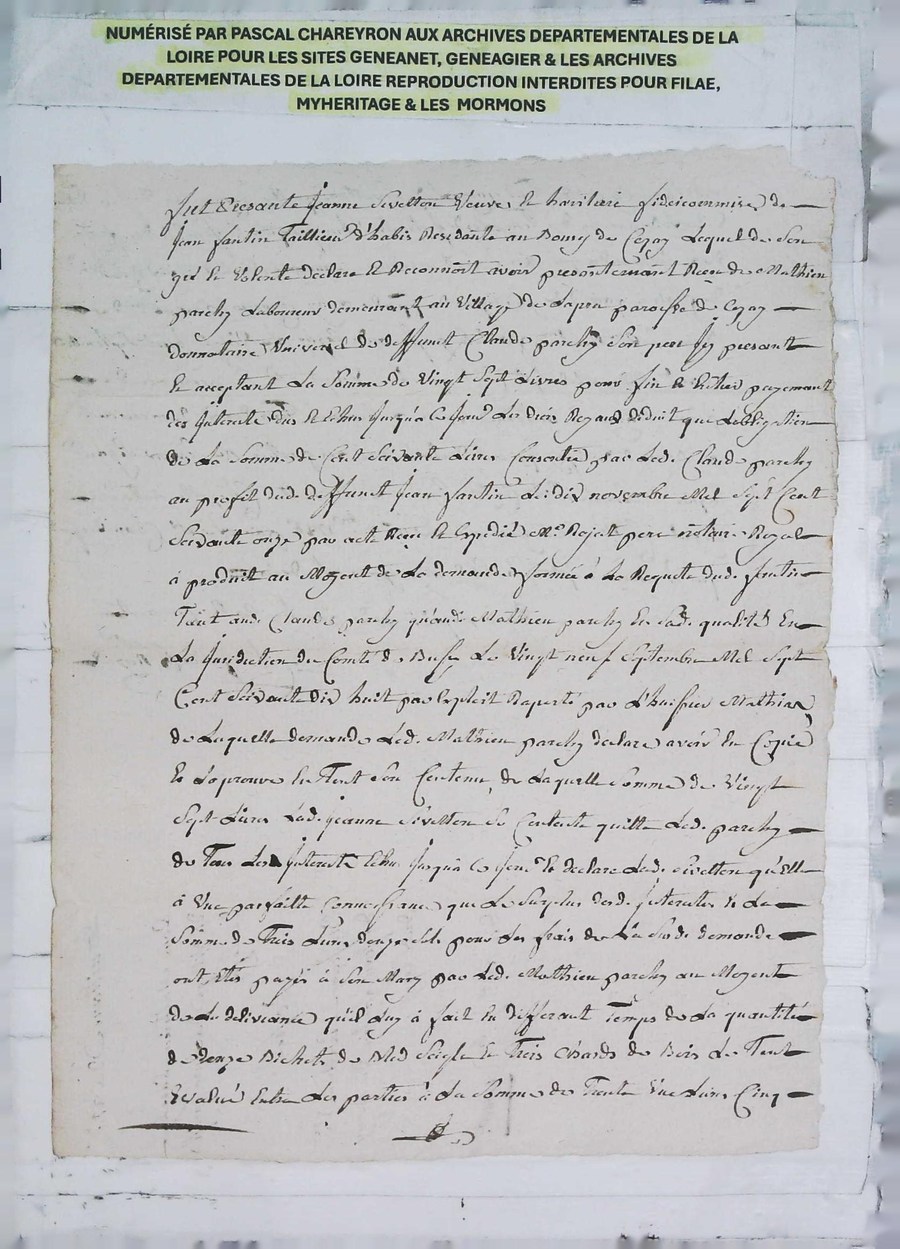 NUMÉRISÉ PAR PASCAL CHAREYRON AUX ARCHIVES DEPARTEMENTALES DE LA
LOIRE POUR LES SITES GENEANET, GENEAGIER & LES ARCHIVES
DEPARTEMENTALES DE LA LOIRE REPRODUCTION INTERDITES POUR FILAE,
MYHERITAGE & LES MORMONS
fut presante jeanne Sivetton Veuve et haritiere fideicommise de
jean fantin Taillieur d'habis Residante au Bourg de Cezay Lequel de Son
gré et Volonté declare et Reconnoit avoir presantemant Receu de Mathieu
parchy Laboureur demeurant au Village de Lapra paroisse de Cezay
donnotaire Universel de deffunct Claude parchy Son pere Icy presant
Et acceptant La Somme de Vingt Sept Livres pour fin et Entier payemant
des Interets dus et Echus jusqu'a ce jour des trois que Lobligation
de La Somme de Cent Soixante Livres Consentie par Led. Claude parchy
au profit dud. deffunct jean fantin Le dix novembre Mil Sept Cent
Soixante onze par acte Receu et Expedié Me. Rojat pere notaire Royal
à produit au Moyent de La demande formée à La Requete dud. fantin
Tant aud. Claude parchy qu'aud. Mathieu parchy En Sad. qualité En
La juridiction du Comté de Bussy Le Vingt neuf Septembre Mil Sept
Cent Soixante dix huit par Exploit Raporté par L'huissier Mathias
de Laquelle demande Led. Mathieu parchy declare avoir Eu Copie
Et Laprouve En Tout Son Contenu, de Laquelle Somme de Vingt
Sept Livres Lad. jeanne Sivetton Se Contente quitte Led. parchy
de Tous Les Interets Echus jusqu'a Ce jour Et declare Lad. Sivetton qu'Elle
à Une parfaitte Connoissance que Le Surplus desd. Interets Et La
Somme de Trois Livres douze Sols pour Les frais de La Susd. demande
ont Etés payés à Son Mary par Led. Mathieu parchy au Moyent
de La delivrance qu'il Luy à fait En differant Temps de La quantité
de douze Bichets de Bled Seigle Et Trois Chards de Bois Le Tout
Evalué Entre Les parties à La Somme de Trente Une Livres Cinq